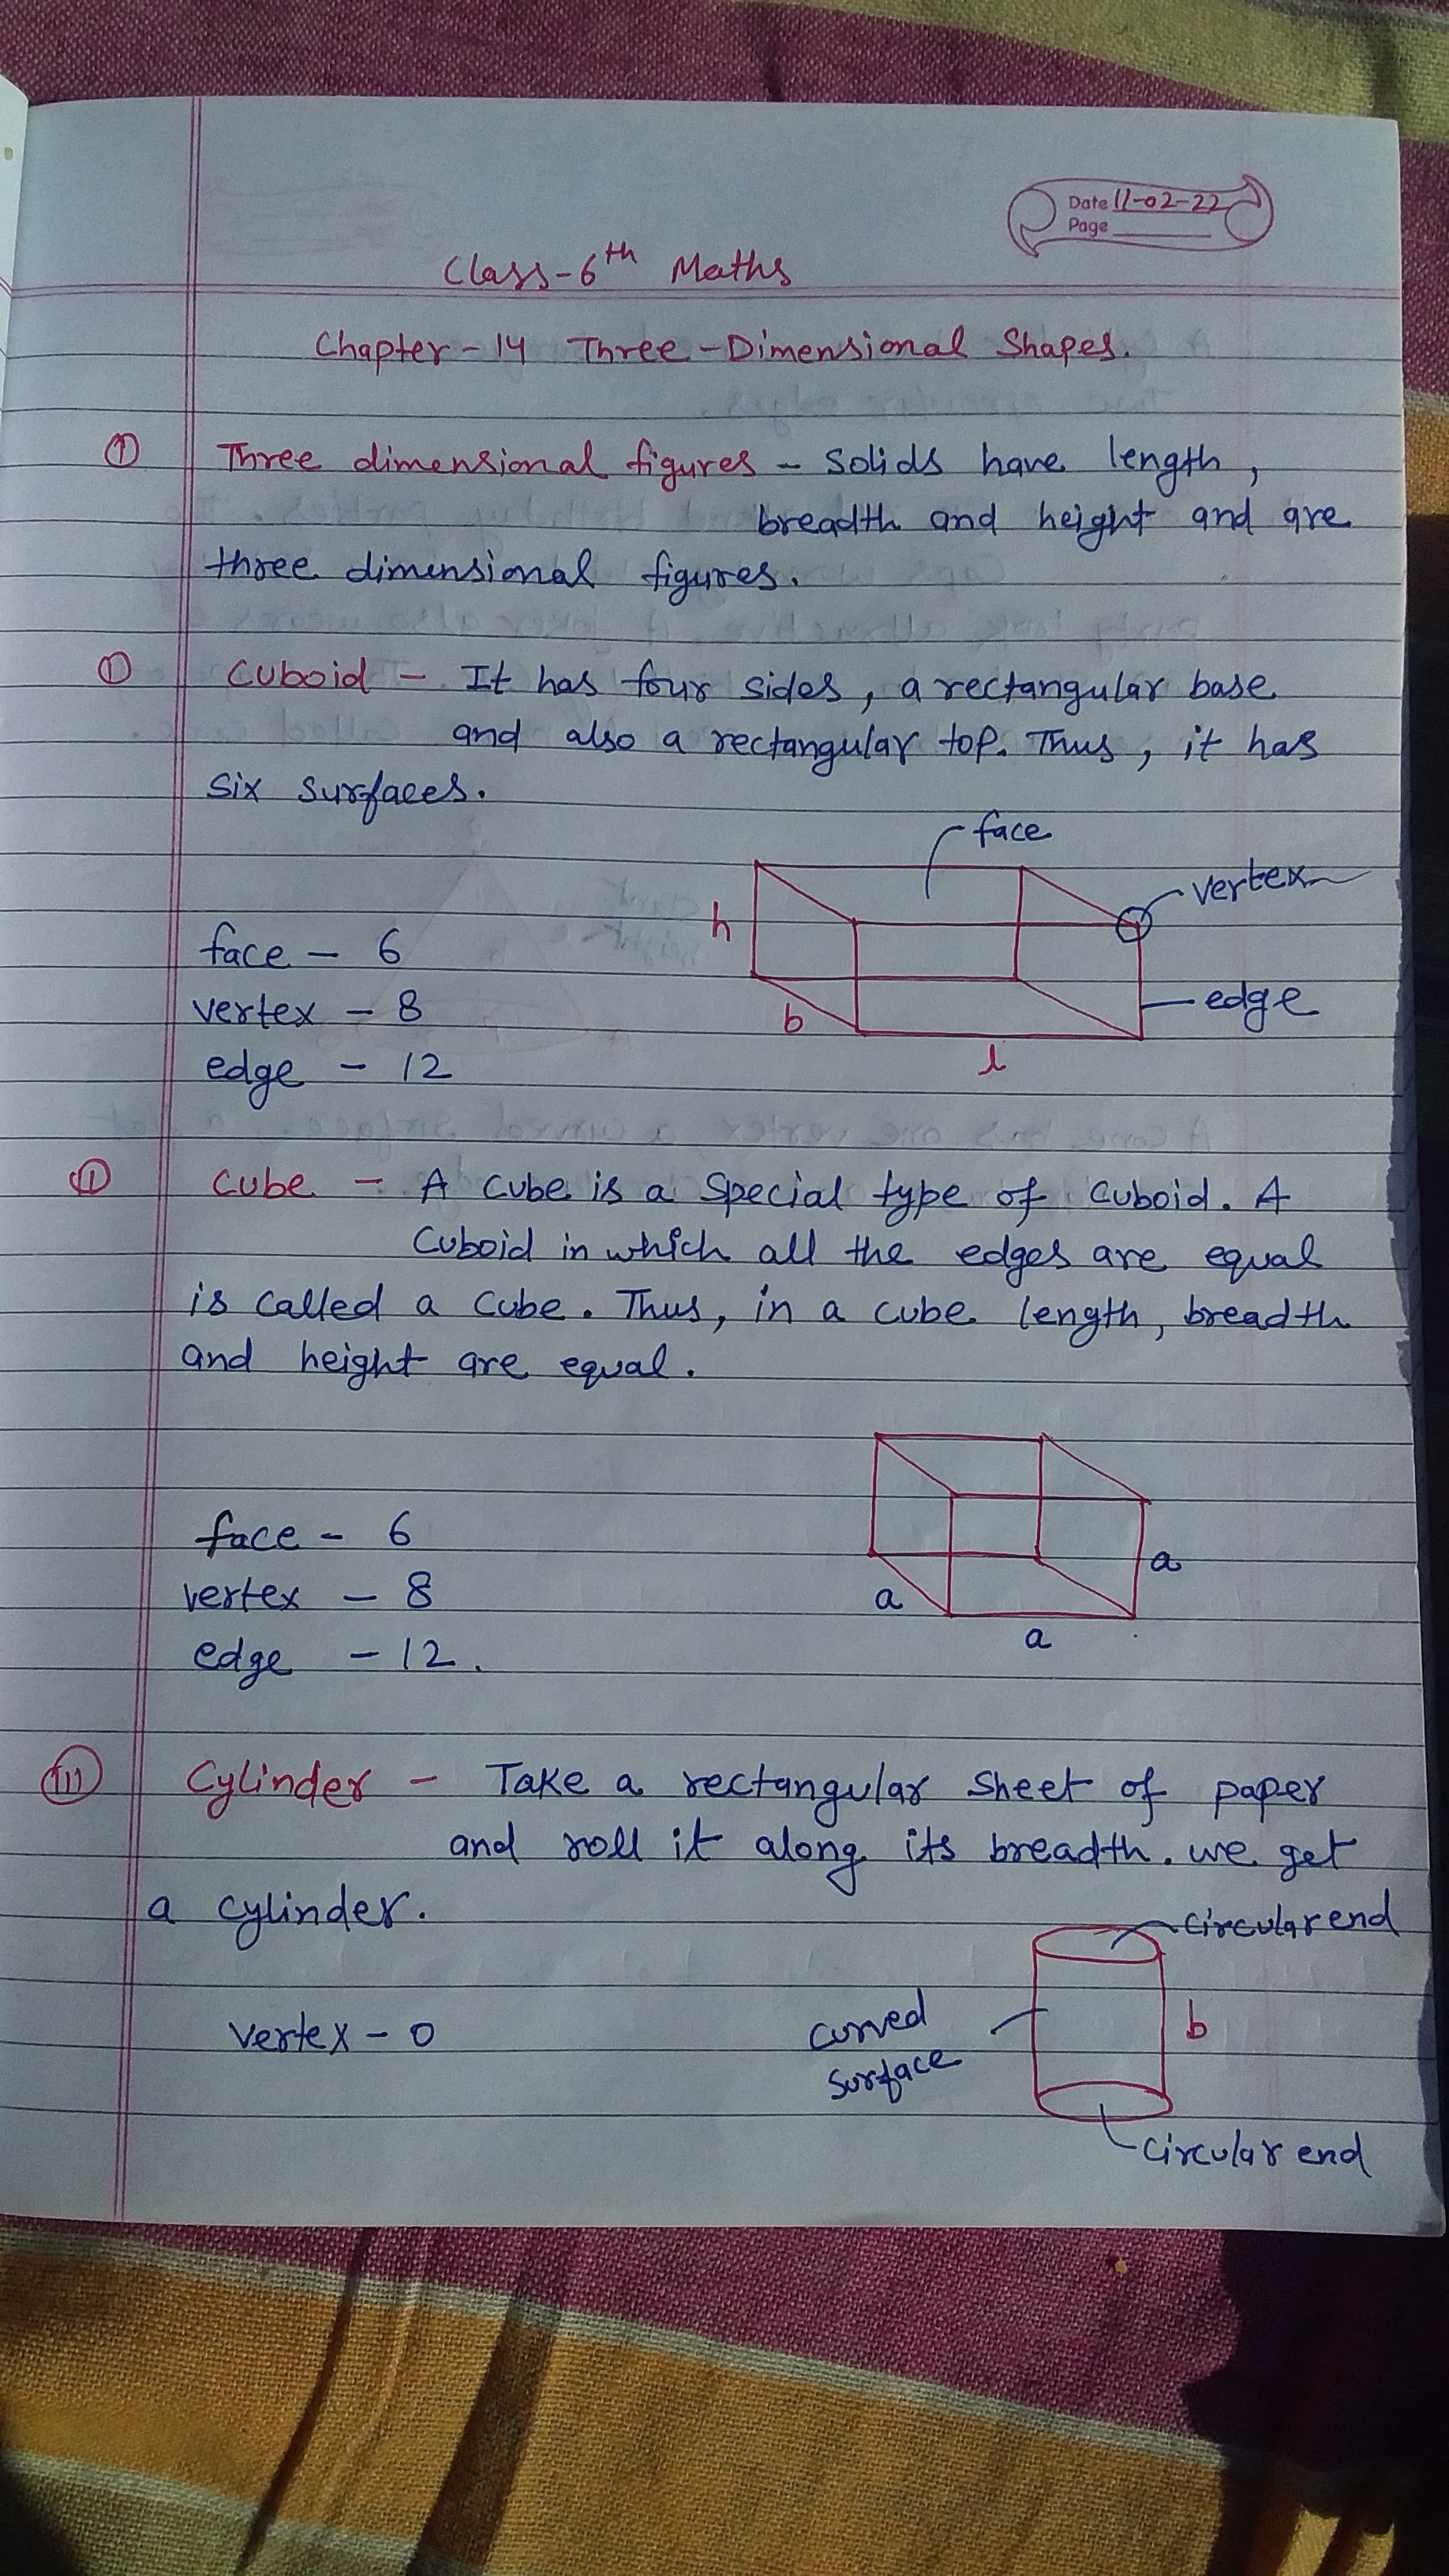 Date 11-02-22
Page
Class-6th Maths
Chapter-14 Three-Dimensional Shapes.
① Three dimensional figures - Solids have length,
breadth and height and are
three dimensional figures.
① Cuboid - It has four sides, a rectangular base
and also a rectangular top. Thus, it has
six surfaces.
face
vertex
h
face - 6
vertex - 8
edge
b
l
edge - 12
(ii) Cube - A cube is a special type of cuboid. A
cuboid in which all the edges are equal
is called a cube. Thus, in a cube length, breadth
and height are equal.
face - 6
a
vertex - 8
a
a
edge - 12.
(iii) Cylinder - Take a rectangular sheet of paper
and roll it along its breadth. we get
a cylinder.
circular end
vertex - 0
curved
surface
b
circular end